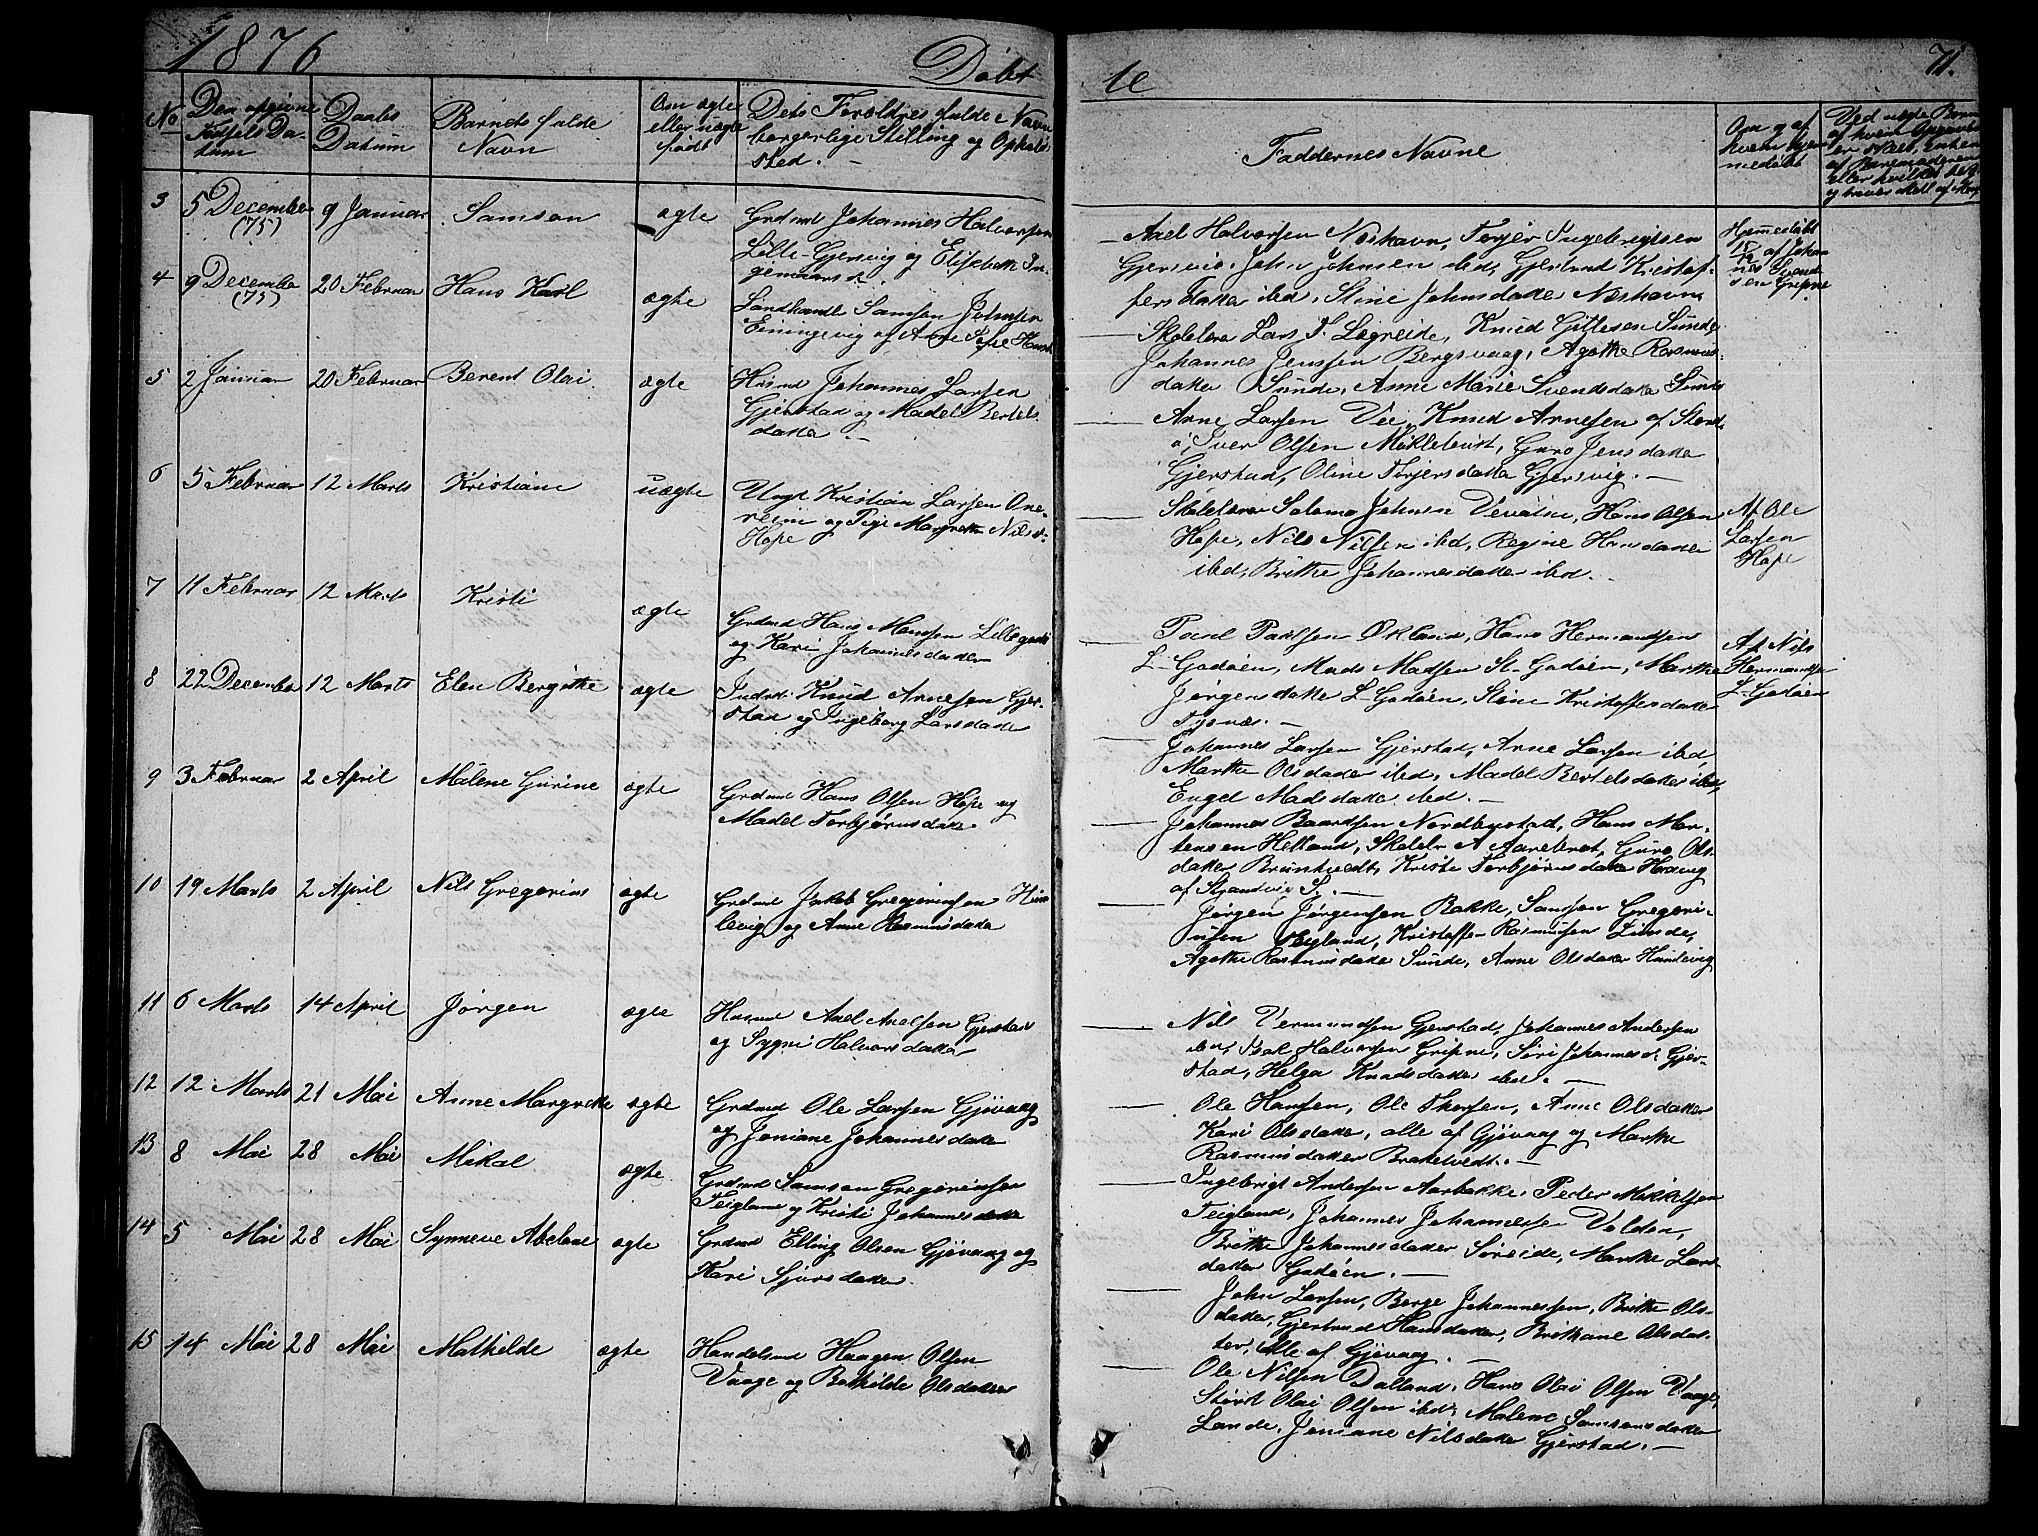 1876
Døbte
71.
No
Den opgivne Fødsels Datum
Daabs Datum
Barnets fulde Navn
Om ægte eller uægte født
Dets Forældres fulde Navn borgerlige Stilling og Opholdssted. -
Faddernes Navne
Om og af hvem hjemmedøbt
3 5 December (75) 9 Januar Samson ægte
Grdmd Johannes Halvorsen
Lille-Gjersvig og Elisabeth In-
gemarsd.
Axel Halvorsen Neshavn, Torger Ingebrigtsen
Gjersvig. John Johnsen ibd, Gjertrud Kristof-
fersdatter ibd, Stine Johnsdatter Neshavn
Hjemmedøbt
15/12 af Johan
nes Svend
sen Gripne
4 9 December (75) 20 Februar Hans Karl ægte
Landhandl Samson Johnsen
Eningevig og Anne Sofie Hansd
Skolelærer Lars J. Lægreide, Knud Gittlesen Sunde
Johannes Jenssen Bergsvaag, Agathe Rasmus-
datter Sunde, Anne Marie Svendsdatter Sunde
5 2 Januar 20 Februar Berent Olai ægte
Husmd Johannes Larsen
Gjerstad og Madel Bertels
datter. -
Arne Larsen Vee, Knud Arnesen af Stord
ö, Iver Olsen Mikleteust, Guro Jensdatter
Gjerstad, Oline Torgersdatter Gjersvig. -
6 5 Februar 12 Marts Kristiane uægte
Ungk Kristian Larsen One-
reim og Pige Margrethe Nilsd.
Hope
Skolelærer Salomo Johnsen Vevatne, Hans Olsen
Hope, Nils Nilsen ibd, Regine Hansdatter
ibd, Brithe Johannesdatter ibd.
Af Ole
Larsen
Hope
7 11 Februar 12 Marts Kristi ægte
Grdmd Hans Monssen Lillegodö
og Kari Johannesdatter
Poul Poulsen Økland, Hans Hermandsen
L-Godöen, Mads Madsen St-Godöen, Marthe
Jørgensdatter L-Godöen, Stine Kristoffersdatter
Tysnæs. -
Af Nils
Hermandsen
L-Godöen
8 22 December 12 Marts Elen Bergithe ægte
Indrst. Knud Arnesen Gjer-
stad og Ingeborg Larsdatter
Johannes Larsen Gjerstad, Arne Larsen ibd,
Marthe Olsdatter ibd, Madel Bertelsdatter ibd,
Engel Madsdatter ibd. -
9 3 Februar 2 April Malene Gurine ægte
Grdmd Hans Olsen Hope og
Madel Torbjørnsdatter
Johannes Baardsen Nordbustad, Hans Mor-
tensen Helland, Skolelr A Aarebrot, Guro Ols-
datter Bruntvedt, Kristi Torbjørnsdatter Hervig
af Strandvig S. -
10 19 Marts 2 April Nils Gregorius ægte
Grdmd Jakob Gregoriusen Hun
levig og Anne Rasmusdatter
Jørgen Jørgensen Bakke, Samson Gregori-
usen Teigland, Kristoffer Rasmusen Sunde,
Agathe Rasmusdatter Sunde, Anne Olsdatter Hundevig
11 6 Marts 14 April Jørgen ægte
Husmd Axel Axelsen Gjerstad
og Sygni Halvorsdatter
Nils Vermundsen Gjerstad, Johannes Andersen
ibd, Poal Halvorsen Gripne, Siri Johannesd. Gjer-
stad, Helga Knudsdatter ibd. -
12 12 Marts 21 Mai Anne Margrethe ægte
Grdmd Ole Larsen Gjøvaag
og Joniane Johannesdatter
Ole Hansen, Ole Thorsen, Anne Olsdatter
Kari Olsdatter, alle af Gjøvaag og Marthe
Rasmusdatter Brakelvedt. -
13 8 Mai 28 Mai Mikal ægte
Grdmd Samson Gregoriusen
Teigland og Kristi Johannesdatter
Ingebrigt Andersen Aarbakke, Peder Mikkelsen
Teigland, Johannes Johannessen Valden,
Brithe Johannesdatter Søreide, Marthe Lars
datter Godöen. -
14 5 Mai 28 Mai Synneve Abelone ægte
Grdmd Elling Olsen Gjøvaag og
Kari Sjursdatter.
John Larsen, Berge Johannessen, Brithe Ols-
datter, Gjertrud Hansdatter, Brithane Olsdat-
ter, alle af Gjøvaag. -
15 14 Mai 28 Mai Mathilde ægte
Handelsmd Haagen Olsen
Vaage og Bothilde Olsdatter
Ole Nilsen Dalland, Hans Olai Olsen Vaage,
Størk Olai Olsen ibd, Malene Samsonsdatter
Lande, Joniane Nilsdatter Gjerstad. -